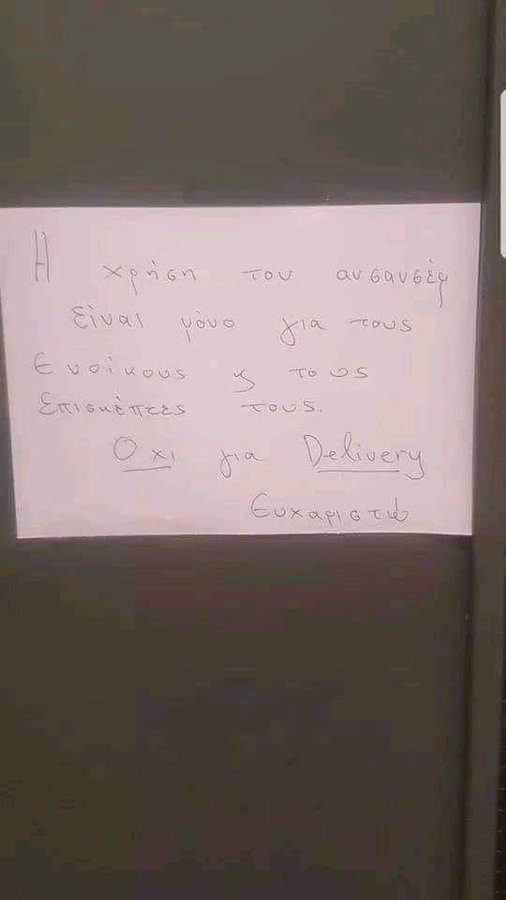 Η χρήση του ανσανσέρ
είναι μόνο για τους
Ενοίκους & τους
Επισκέπτες τους.
Οχι για Delivery
Ευχαριστώ